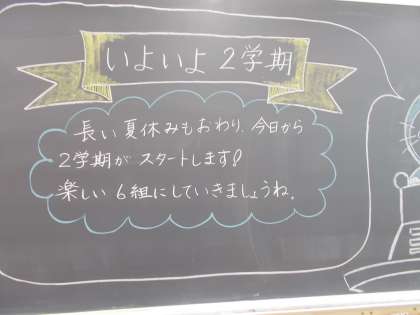 いよいよ2学期
長い夏休みもおわり、今日から
2学期がスタートします!
楽しい6組にしていきましょうね。